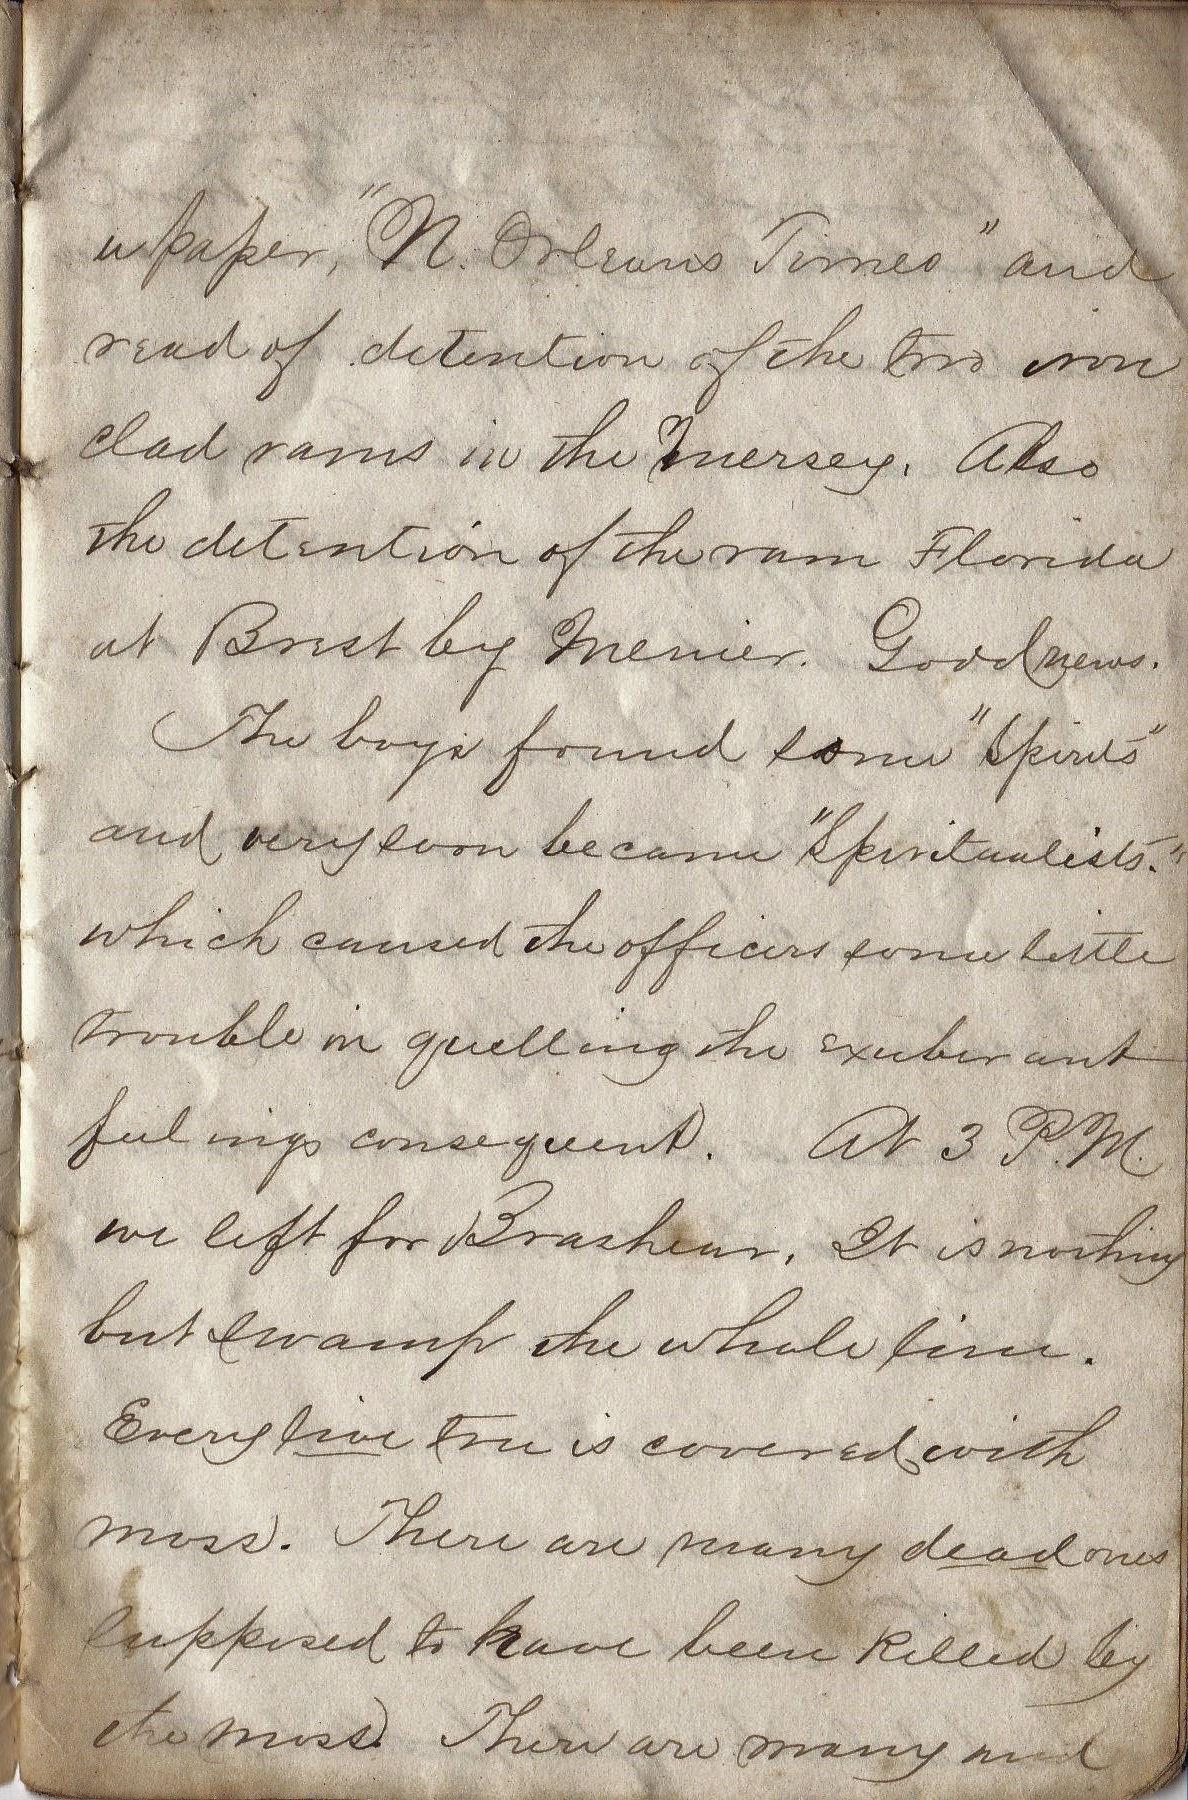 a paper, "N. Orleans Times" and
read of detention of the two iron
clad rams in the Mersey. Also
the detention of the ram Florida
at Brest by Menier. Good news.
The boys found some "Spirits"
and very soon became "Spiritualists."
which caused the officers some little
trouble in quelling the exuberant
feelings consequent. At 3 P.M.
we left for Brashear. It is nothing
but swamp the whole line.
Every live tree is covered with
moss. There are many dead ones
supposed to have been killed by
the moss. There are many and